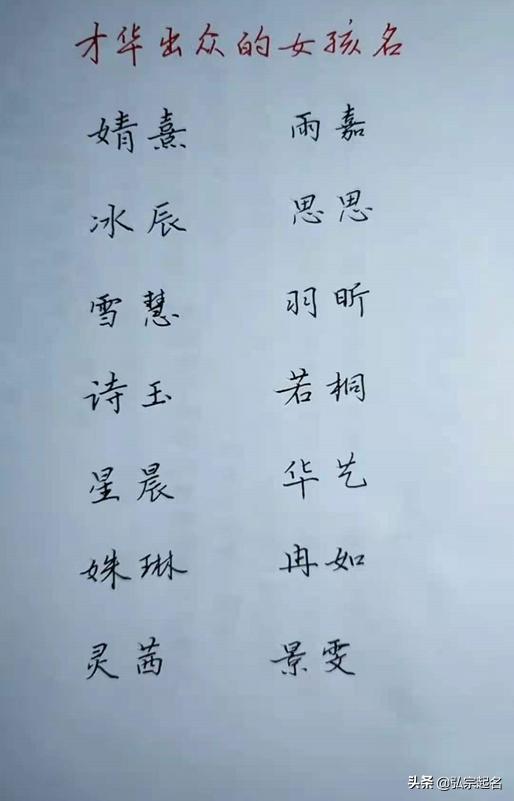 才华出众的女孩名
婧熹 雨嘉
冰辰 思思
雪慧 羽昕
诗玉 若桐
星晨 华艺
姝琳 冉如
灵茜 景雯
头条 @弘宗起名